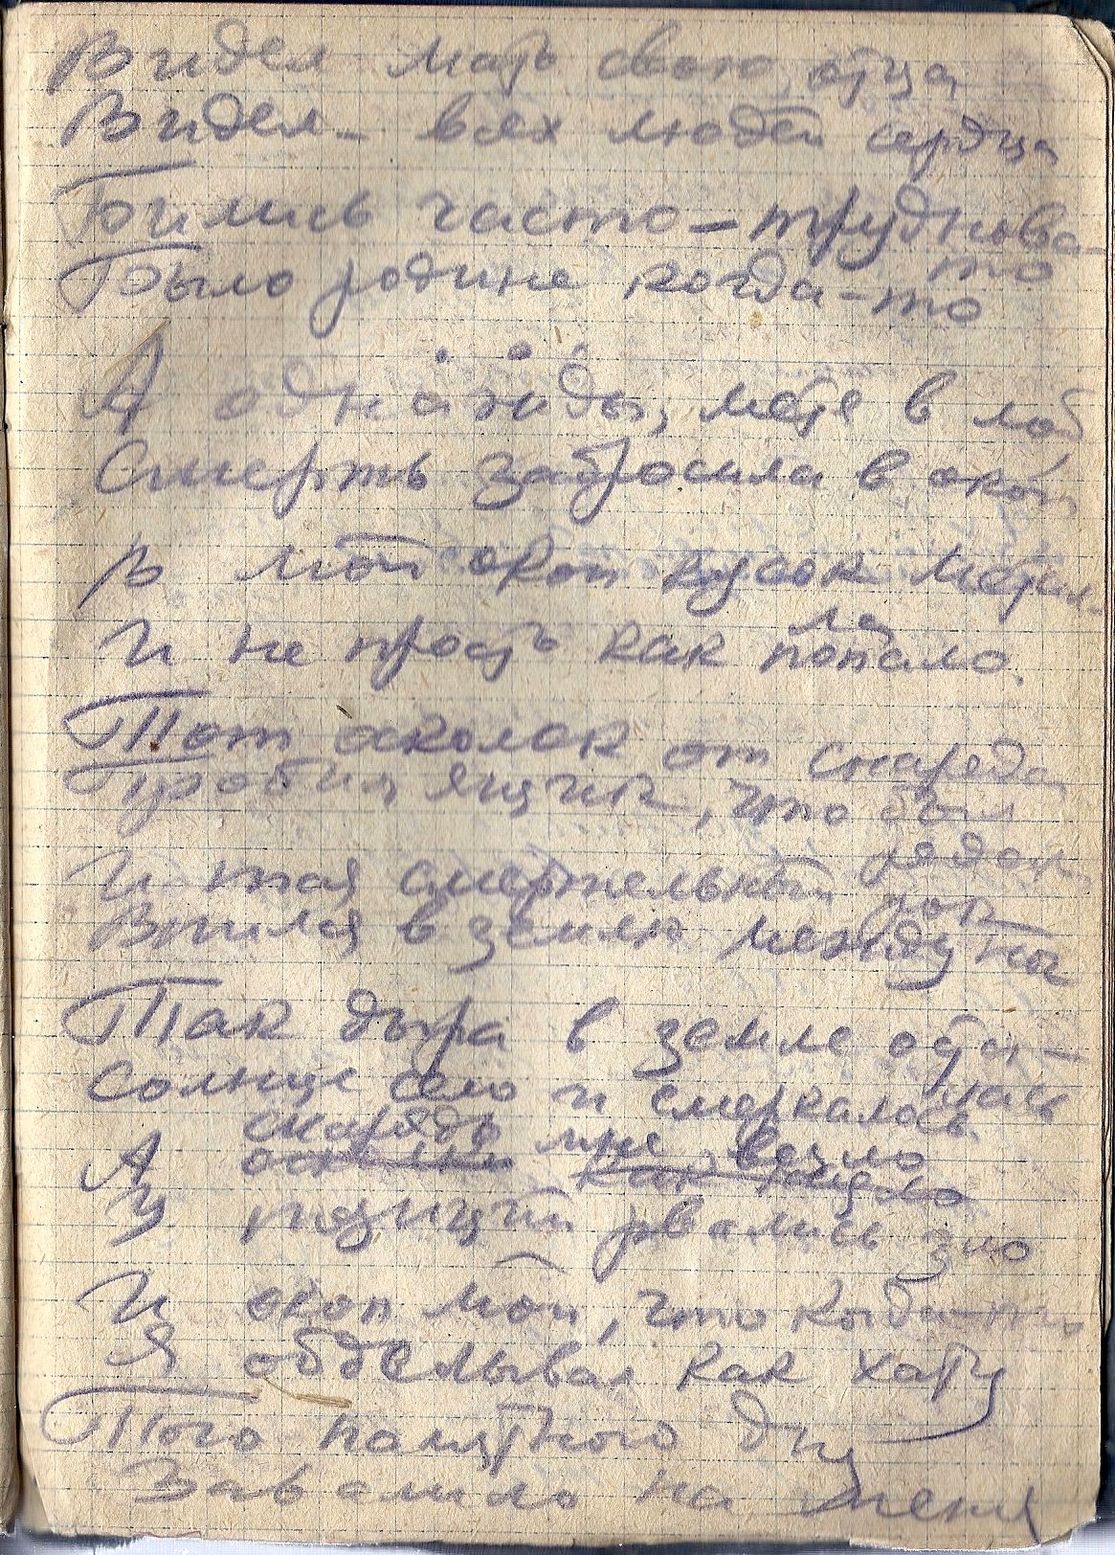 Видел мать свою, отца
Видел - всех людей сердца
Бились часто - труднова-
то
Было родине когда-то
А однажды, метя в лоб
Смерть забросила в окоп
В мой окоп кусок метал-
ла
И не просто как попало.
Тот осколок от снареда
Пробил ящик, что был
рядом
И тая смертельный
рок
Впился в землю между ног
Так дыра в земле оста-
лась
Солнце село и смеркалось.
снаряды мне везло
А как
У позиций рвались зло
И окоп мой, что когда-то
Я обделывал как хату
Того памятного дня
Завалило на меня